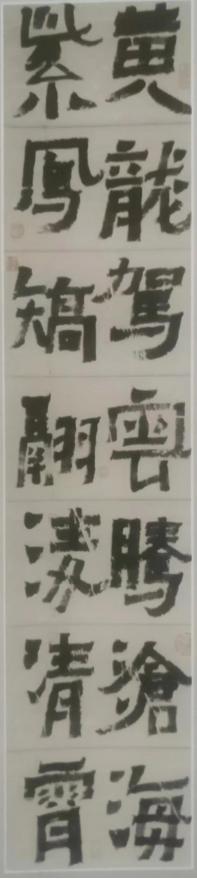 黄龍駕雲騰滄海
紫鳳矯翮凌清霄